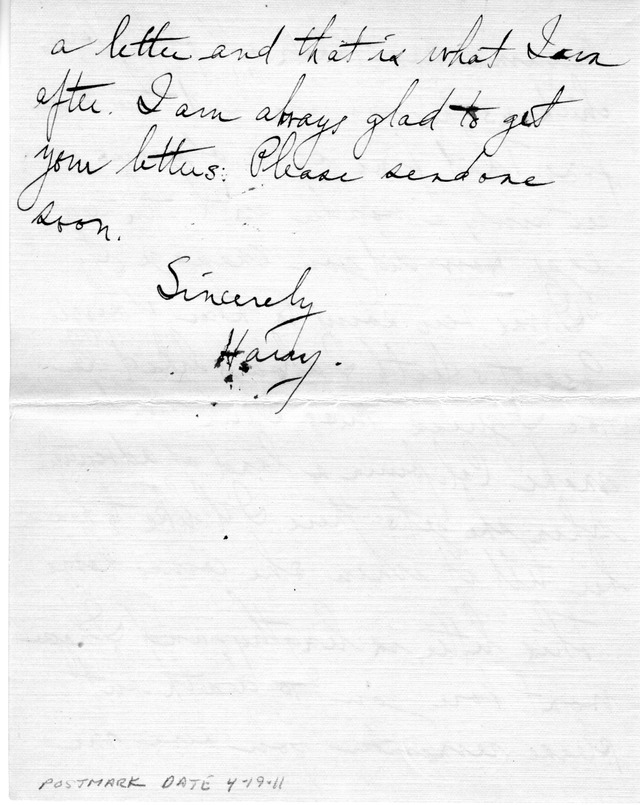 a letter and that is what I am
after. I am always glad to get
your letters. Please send one
soon.
Sincerely
Harry.
POSTMARK DATE 4-19-11